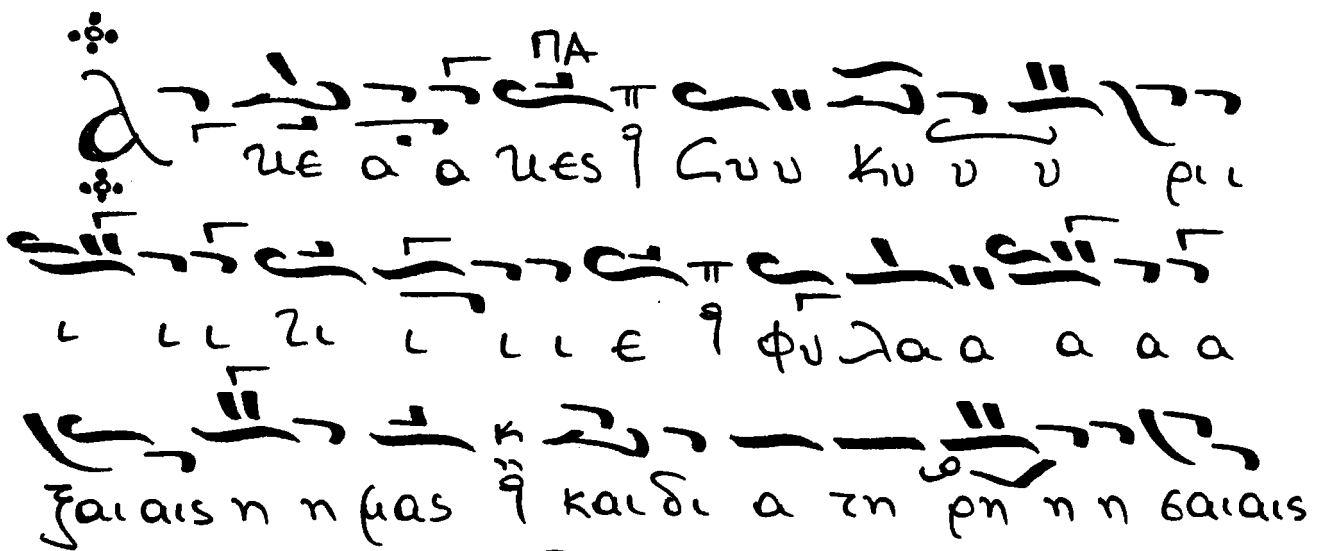 ΠΑ
α νε α α νες ϙ Συ υ Κυ υ υ ρι ι
ι ι ι ι ι ι ε ϙ φυ λα α α α α
ξαι αις η η μας ϙ και δι α τη ρη η η σαι αις